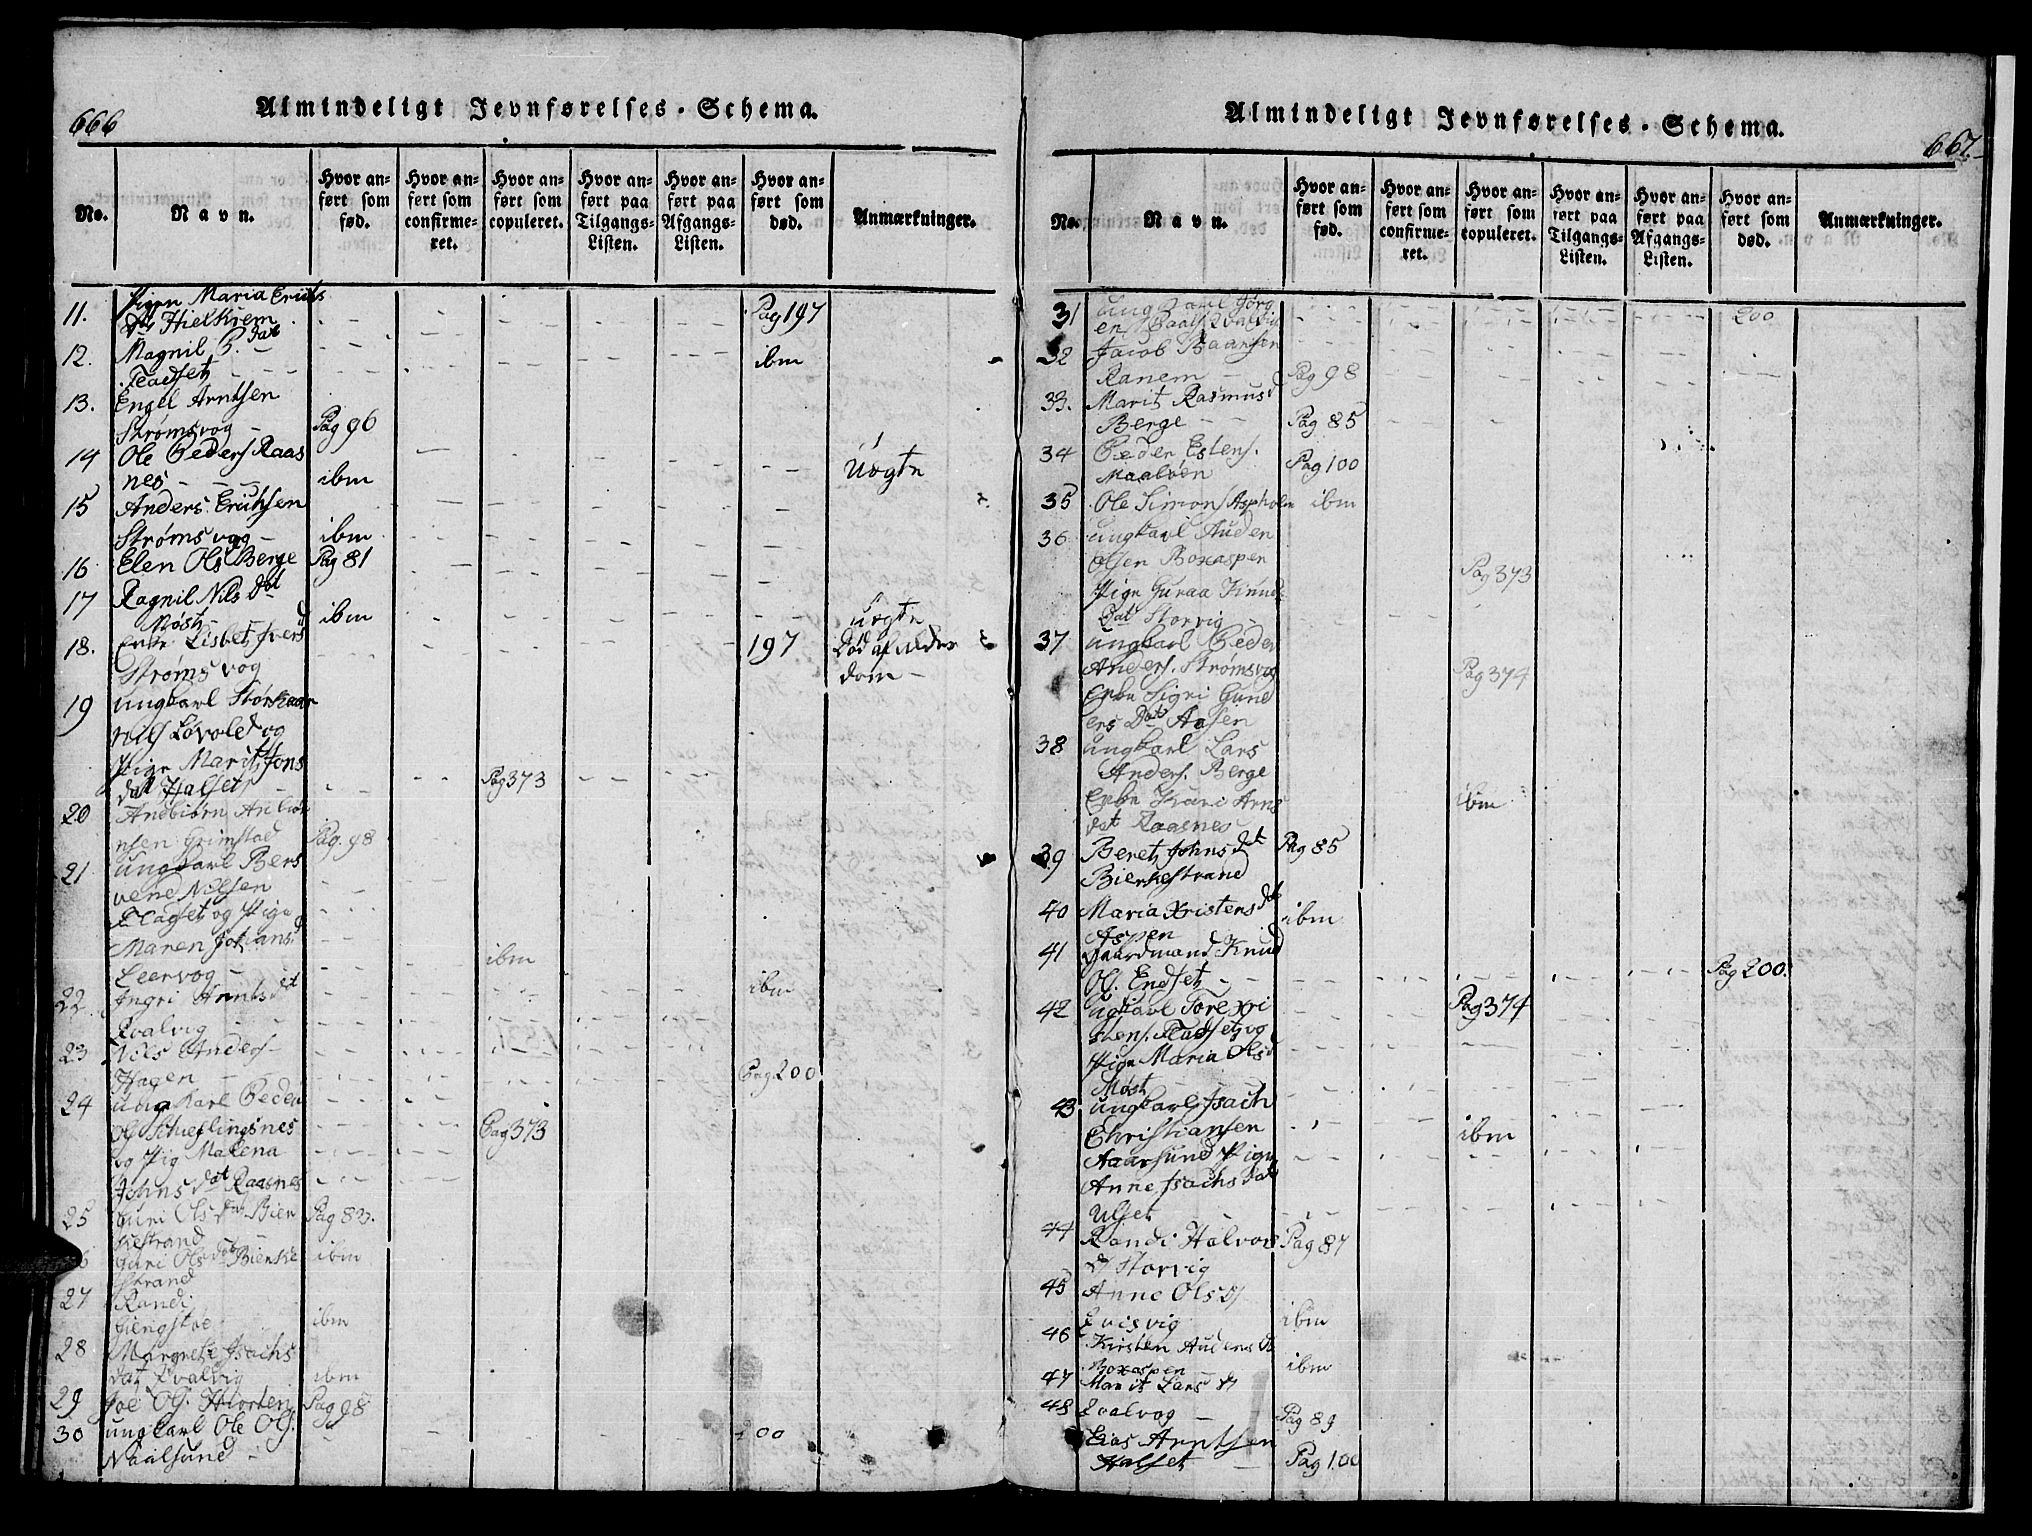 666
Almindeligt Jevnførelses-Schema.
No.
Navn.
Hvor anført som fød.
Hvor anført som confirmeret.
Hvor anført som copuleret.
Hvor anført paa Tilgangs-Listen.
Hvor anført paa Afgangs-Listen.
Hvor anført som død.
Anmærkninger.
11. Pigen Maria Erichs
dat Hielkrem Pag 197
12. Magnil P. dat
Fladset ibm
13. Engel Arntsen
Strømsvog Pag 96
14 Ole Peders Raas
nes ibm Uægte
15 Anders Erichsen
Strømsvog ibm
16 Elen Ols Berge Pag 81
17 Ragnil Nils dat
Møst ibm Uægte
18. Enke Lisbet Ivers d
Strømsvog 197 Død af Alder
dom
19 ungkarl Størkaar
Nils Løvold og
Pige Marit Jons
dat Halset Pag 373
20 Anebiørn Anbiør
nsen Grimstad Pag. 98
21 ungkarl Bers
vend Nilsen
Flaset og Pige
Maren Johans d
Leervog ibm
22 Ingri Arnts dat
Qvalvig ibm
23 Nils Anders
Hagen Pag 200
24 ungkarl Peder
Ols Schieflingsnes Pag 373
og Pig Malena
Johns dat Raasnes
25 Guri Ols dat Bier Pag 83.
kestrand
26 Guri Ols dat Bierke ibm
strand
27 Randi
ibm
28 Margrete Isachs
dat Qvalvig ibm
29 Joe Ols. Hiorten Pag 98
30 ungkarl Ole Ols.
Naalsund 200
667
Almindeligt Jevnførelses-Schema.
No.
Navn.
Hvor anført som fød.
Hvor anført som confirmeret.
Hvor anført som copuleret.
Hvor anført paa Tilgangs-Listen.
Hvor anført paa Afgangs-Listen.
Hvor anført som død.
Anmærkninger.
31 ung Karl Jørg
en Paals Qvalvig 200
32 Jacob Baarsen
Ranem Pag 98
33. Marit Rasmus d
Berge Pag 85
34 Peder Estens.
Maaløen Pag 100
35 Ole Simons Aspholm ibm
36 ungkarl Auden
Olsen Boxaspen Pag 373
Pige Guraa Knuds
Dat Storvig
37 ungkarl Peder
Anders. Strømsvog Pag 374
Enke Sigri Gund
ers Dat Aasen
38 ungkarl Lars
Anders. Berge
Enke Kari Arns ibm
dat Raasnes
39 Beret Johns dat Pag 85
Bierkestrand
40 Maria Xristens dat ibm
Aspen
41 Gaardmand Knud
Ols. Endset Pag 200.
42 ugkarl Tore Xri Pag 374
stens. Fladset og
Pige Maria Ols d
Møst
43 ungkarl Isach
Christiansen ibm
Aarsund Pige
Anne Isachs dat
Ulset
44 Randi Halvors Pag 87
d Storvig
45 Anne Ols D
Evisvig ibm
46 Kirsten Audens D
Boxaspen ibm
47 Marit Lars D
Qvalvog Pag 89
48 Elias Arntsen
Halset Pag 100